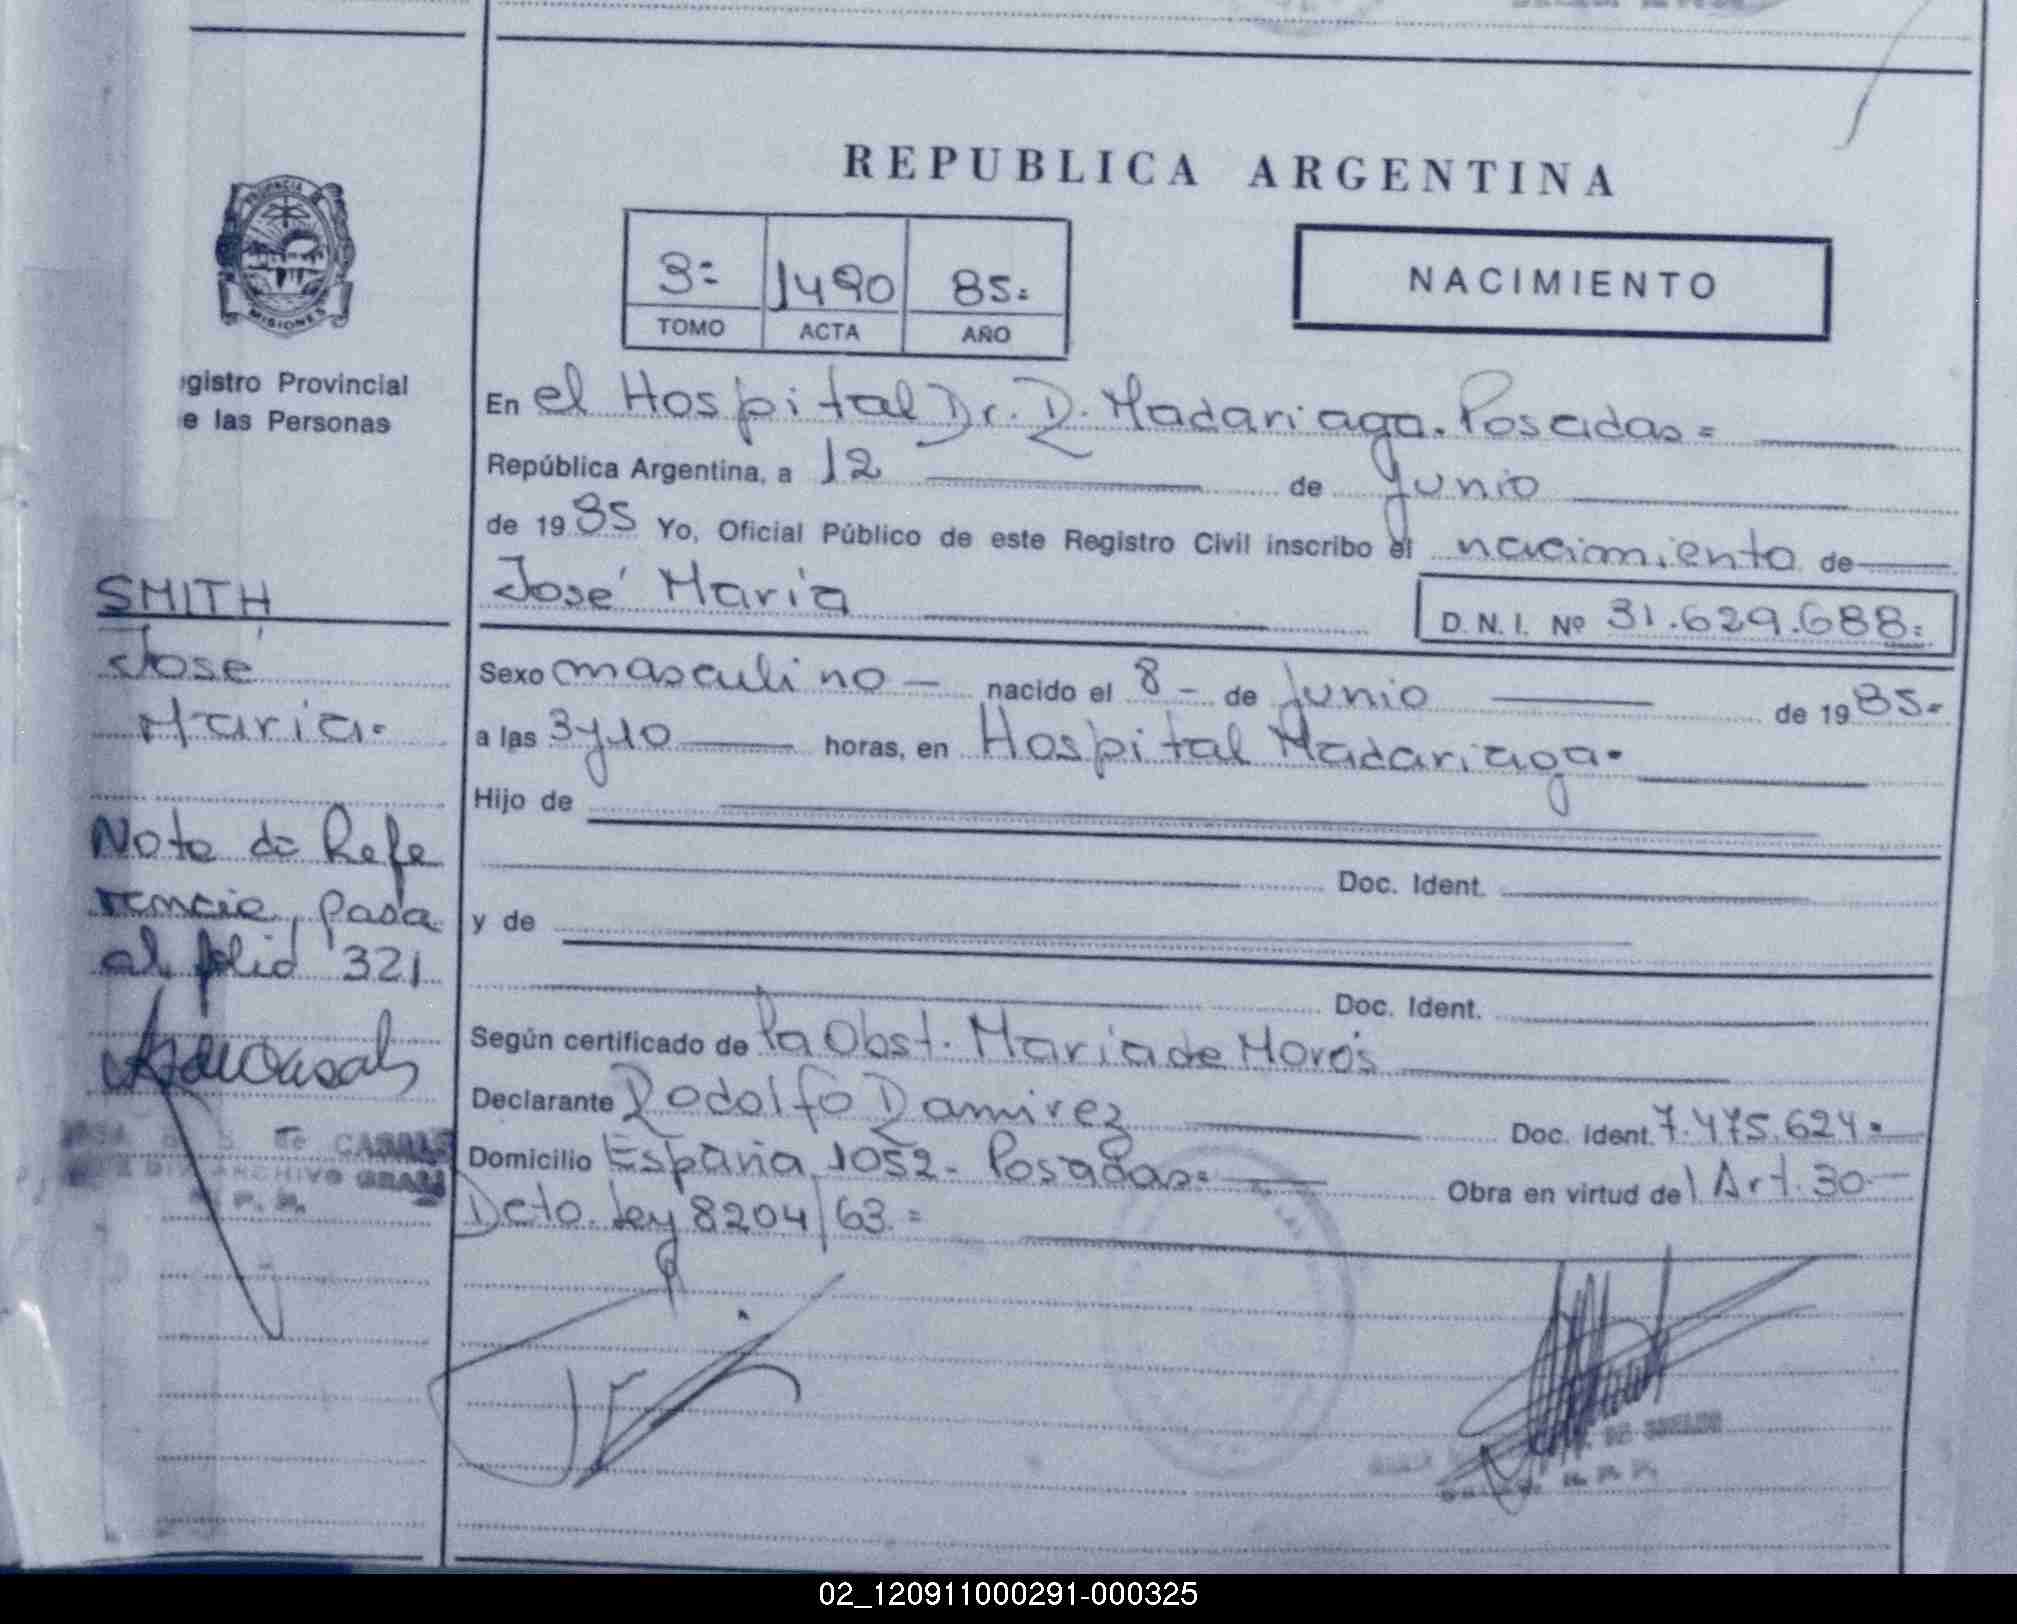 REPUBLICA ARGENTINA
PROVINCIA DE
MISIONES
gistro Provincial
e las Personas
3= 1490 85=
TOMO ACTA AÑO
NACIMIENTO
En el Hospital Dr. R. Madariaga. Posadas=
República Argentina, a 12 de Junio
de 1985 Yo, Oficial Público de este Registro Civil inscribo el nacimiento de
José María
D. N. I. Nº 31.629.688=
Sexo masculino - nacido el 8 - de Junio de 1985=
a las 3y10 horas, en Hospital Madariaga.
Hijo de
Doc. Ident.
y de
Doc. Ident.
Según certificado de la Obst. María de Moros
Declarante Rodolfo Ramirez Doc. Ident. 7.475.624.
Domicilio España 1052- Posadas= Obra en virtud del Art. 30-
Dcto. Ley 8204/63.=
SMITH
José
María.
Nota de Refe
rencia, pasa
al folio 321
de CASALS
ARCHIVO GRAL
R. P. P.
DE
02_120911000291-000325